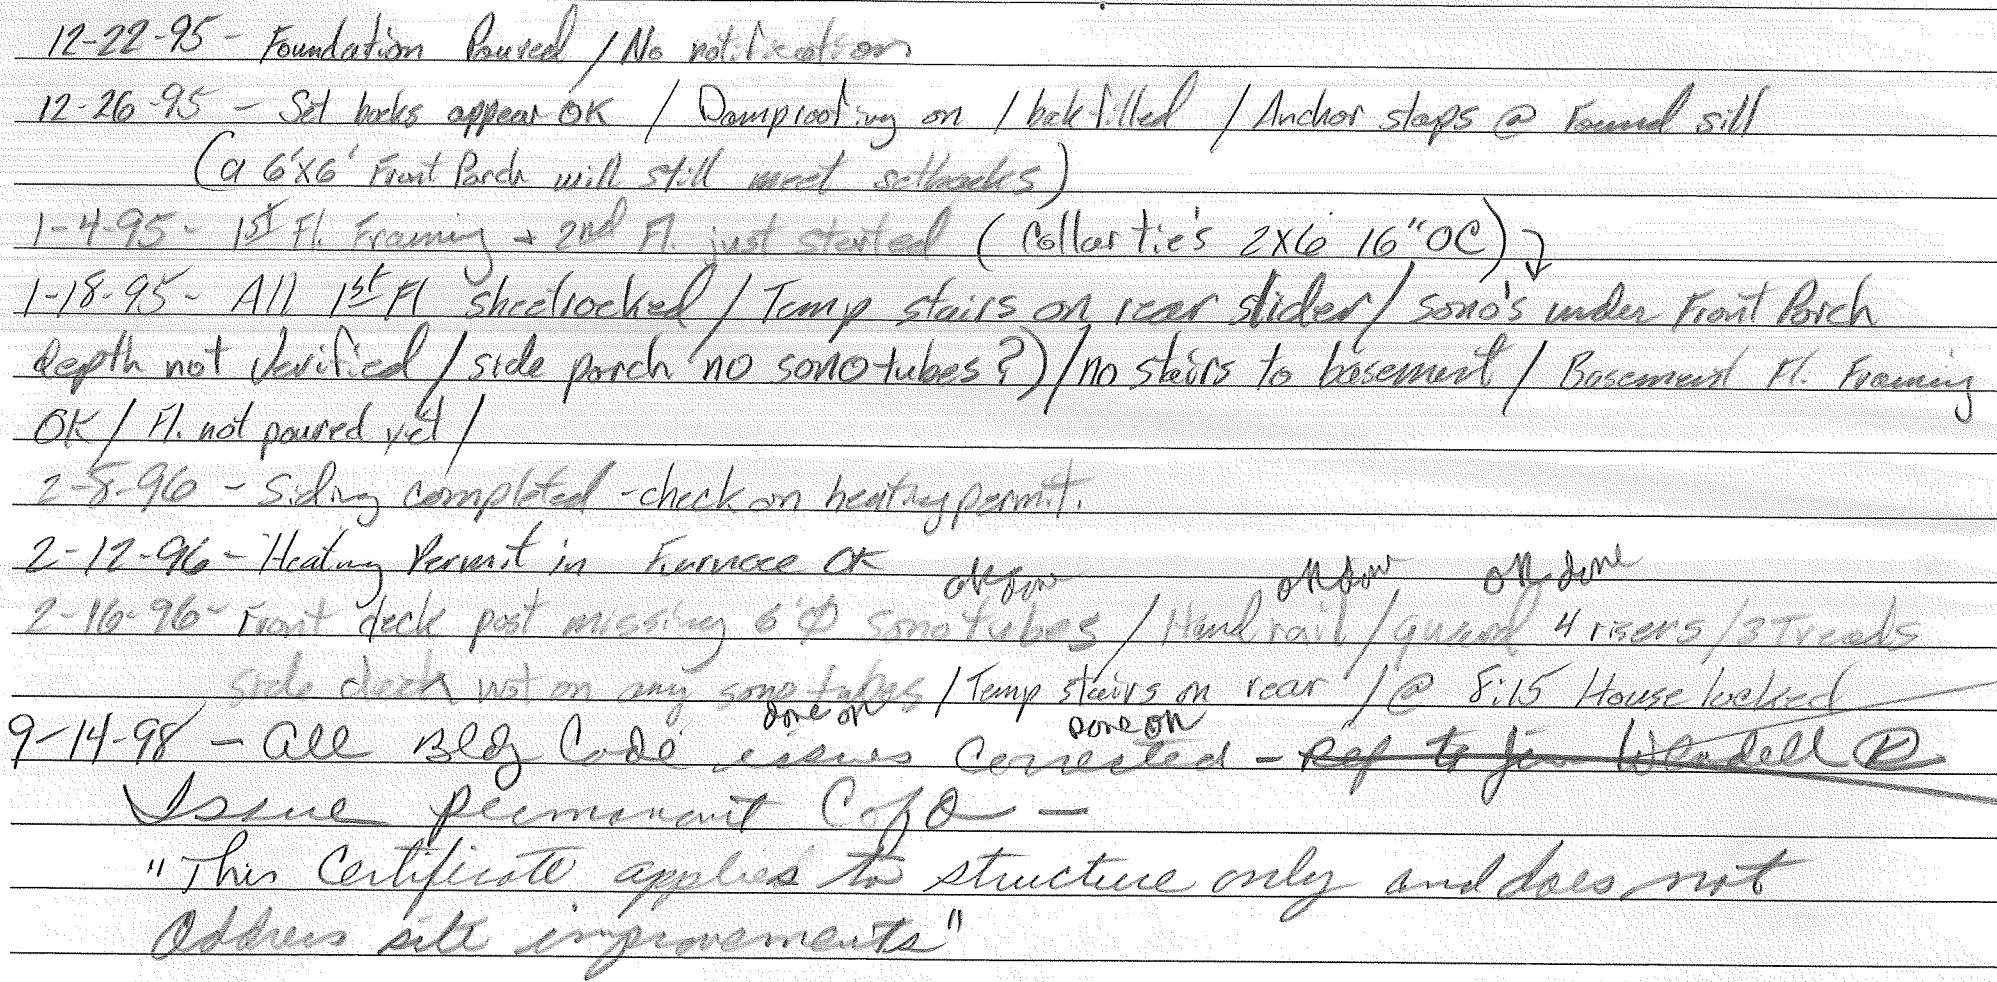 12-22-95 - Foundation Poured / No notification
12-26-95 - Set backs appear OK / Damproofing on / backfilled / Anchor staps @ Found sill
(a 6'x6' Front Porch will still meet setbacks)
1-4-95 - 1st Fl. Framing + 2nd Fl. just started (Collar tie's 2x6 16" OC)
1-18-95 - All 1st Fl sheetrocked / Temp stairs on rear slider / sono's under Front Porch
depth not verified / side porch no sonotubes?) / no stairs to basement / Basement Fl. Framing
OK / Fl. not poured yet /
2-8-96 - Siding completed - check on heating permit.
2-12-96 - Heating Permit in Furnace OK
ok done ok done ok done
2-16-96 - Front deck post missing 6"Ø sonotubes / Handrail / guard 4 risers / 3 Treads
side deck not on any sonotubes / Temp stairs on rear / @ 8:15 House locked
done ok done ok
9-14-98 - All Bldg Code issues Corrected - Ref to Jim Wendell
Issue permanant C of O -
"This Certificate applies to structure only and does not
Address site improvements"